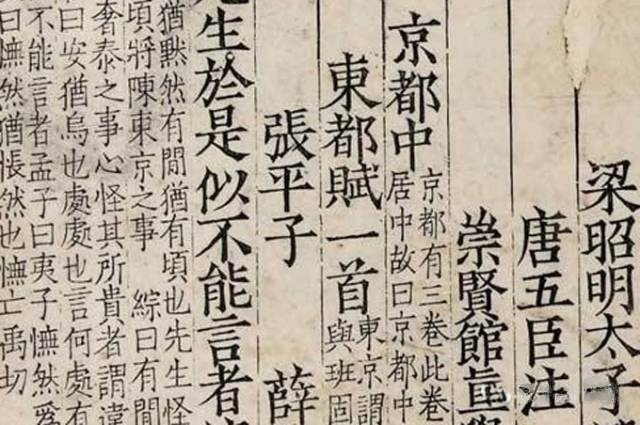 梁昭明太子
唐五臣注
崇賢館直
京都中
京都有三卷此卷
居中故曰京都中
東都賦一首
東京謂
與班固
張平子 薛
生於是似不能言者
猶黙然有間猶有頃也先生怪
頃將陳東京之事 綜曰有間
奢泰之事心怪其所貴者謂違
曰安猶烏也處處也言何處有
不能言者孟子曰夷子憮然爲
曰憮然猶悵然也憮亡禹切